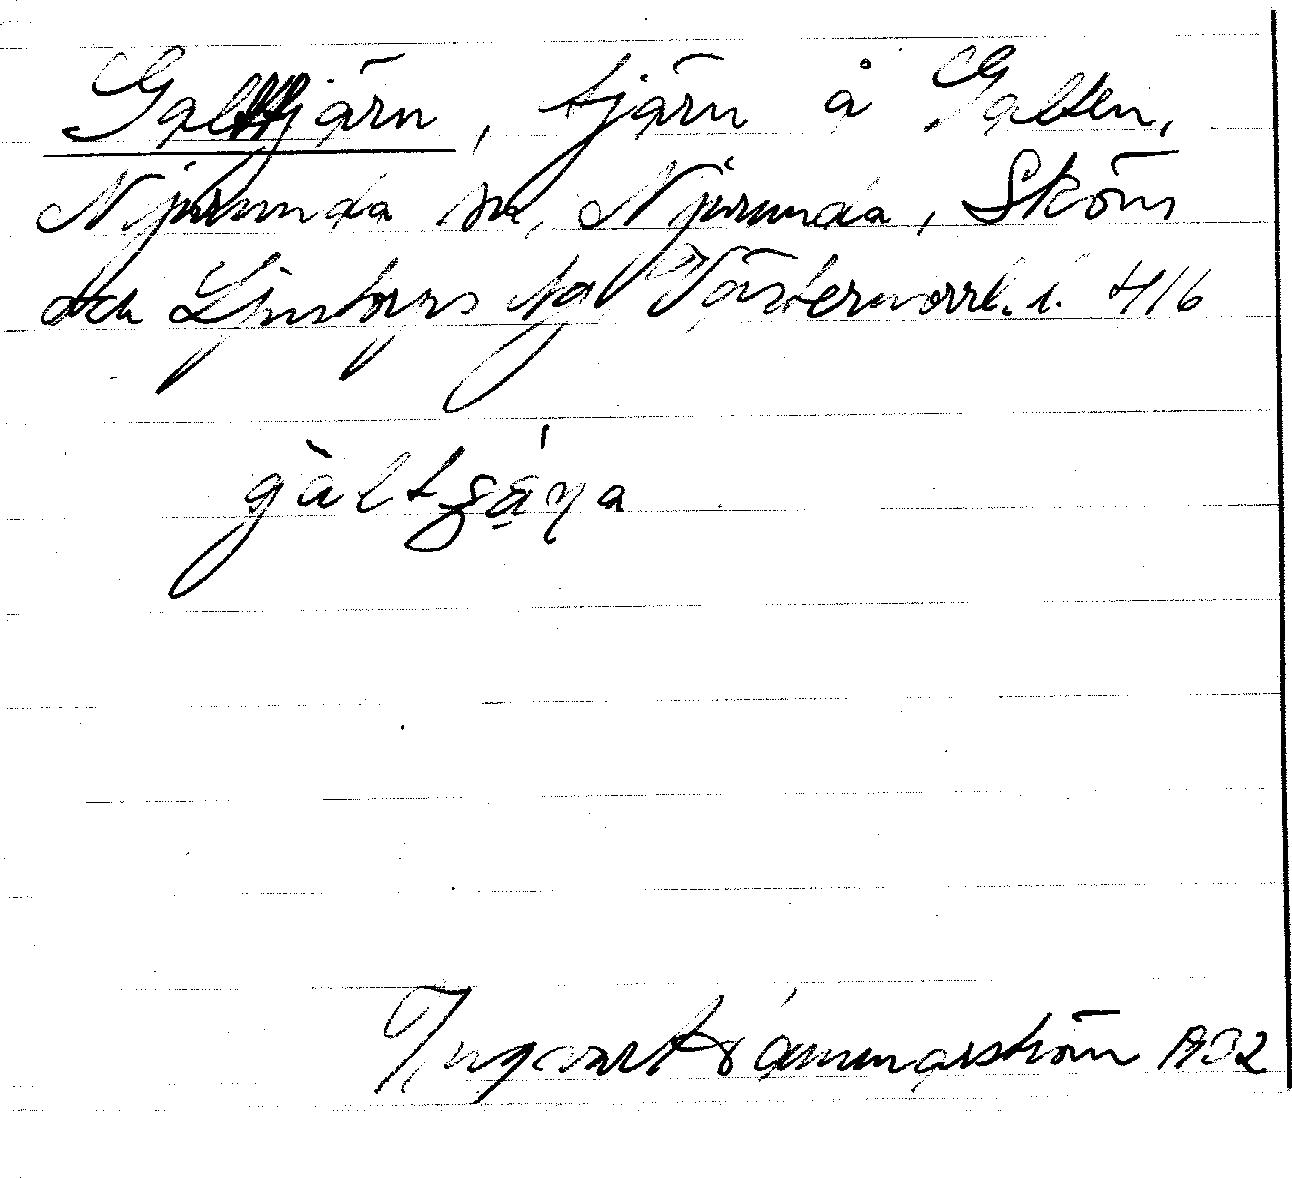 Galttjärn, tjärn å Galten,
Njurunda sn, Njurunda, Sköns
och Ljustorps tg Västernorrl. l. 416
gàltʂä́ɳa
Ingvar Hammarström 1932